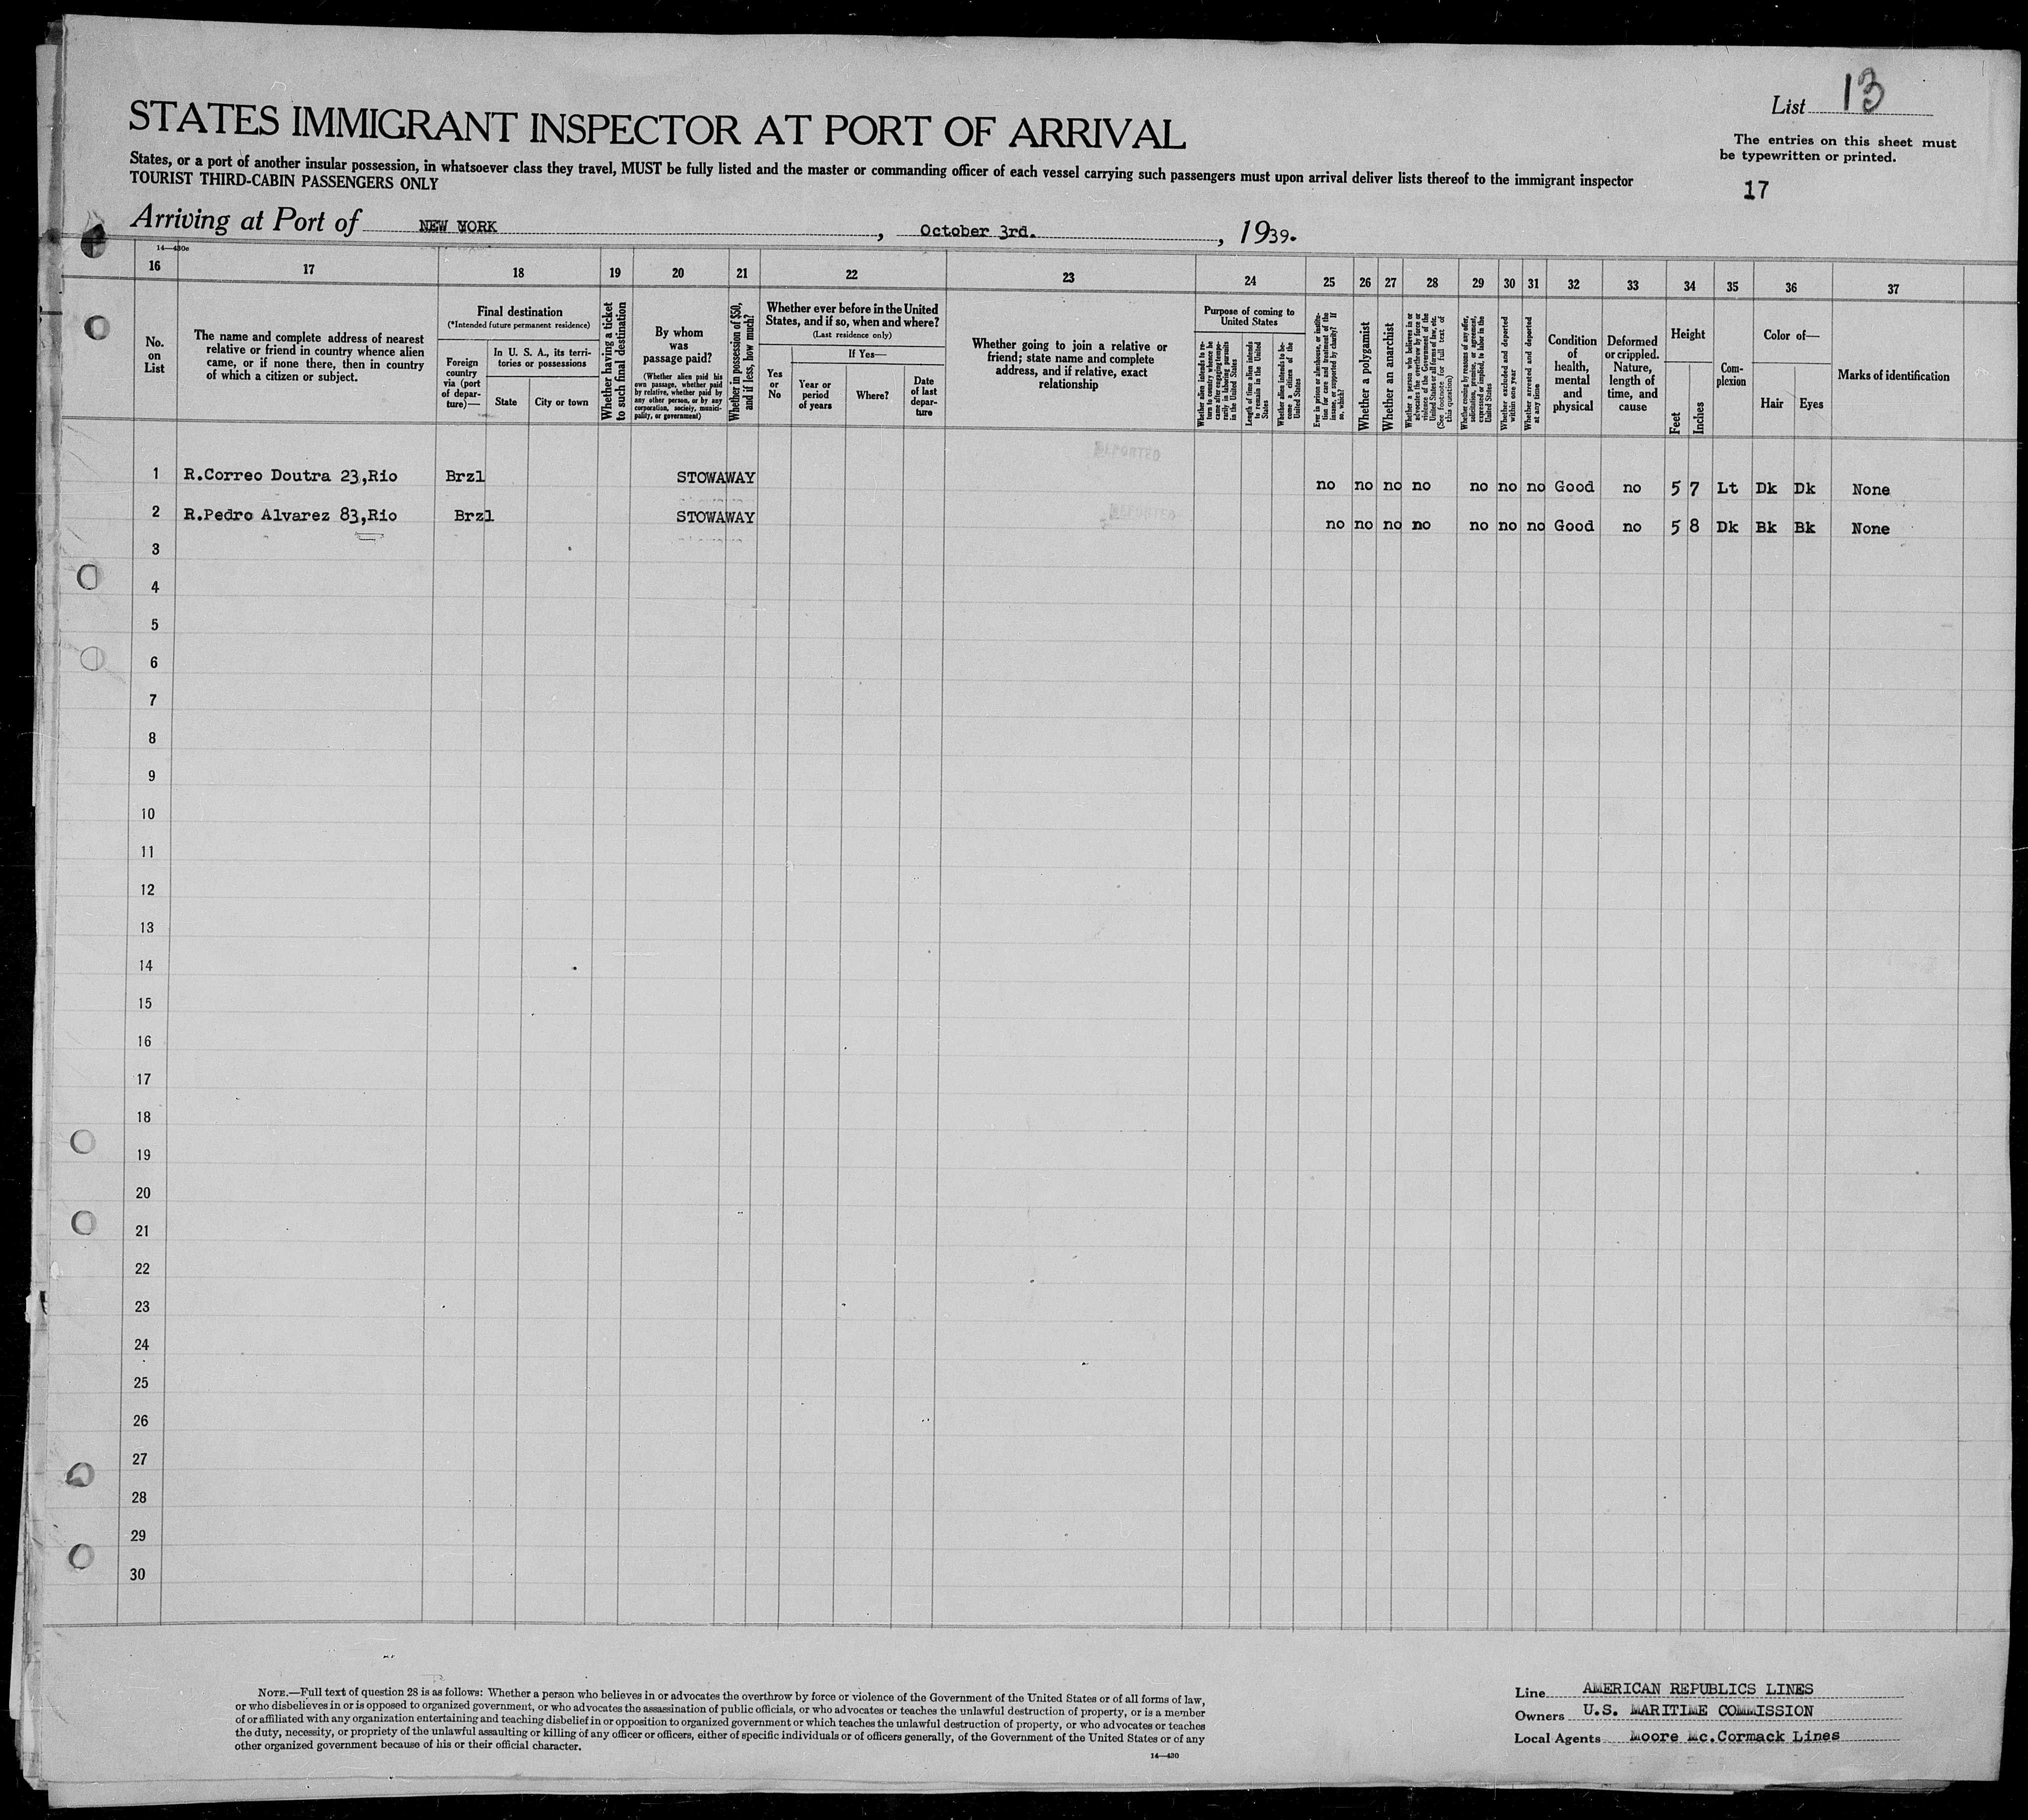 List 13
STATES IMMIGRANT INSPECTOR AT PORT OF ARRIVAL
The entries on this sheet must
be typewritten or printed.
States, or a port of another insular possession, in whatsoever class they travel, MUST be fully listed and the master or commanding officer of each vessel carrying such passengers must upon arrival deliver lists thereof to the immigrant inspector
TOURIST THIRD-CABIN PASSENGERS ONLY
17
Arriving at Port of NEW YORK, October 3rd., 1939.
14—430e
16 17 18 19 20 21 22 23 24 25 26 27 28 29 30 31 32 33 34 35 36 37
No.
on
List
The name and complete address of nearest
relative or friend in country whence alien
came, or if none there, then in country
of which a citizen or subject.
Final destination
(*Intended future permanent residence)
Foreign
country
via (port
of depar-
ture)—
In U. S. A., its terri-
tories or possessions
State
City or town
Whether having a ticket
to such final destination
By whom
was
passage paid?
(Whether alien paid his
own passage, whether paid
by relative, whether paid by
any other person, or by any
corporation, society, munici-
pality, or government)
Whether in possession of $50,
and if less, how much?
Whether ever before in the United
States, and if so, when and where?
(Last residence only)
Yes
or
No
If Yes—
Year or
period
of years
Where?
Date
of last
depar-
ture
Whether going to join a relative or
friend; state name and complete
address, and if relative, exact
relationship
Purpose of coming to
United States
Whether alien intends to re-
turn to country whence he
came after engaging tempo-
rarily in laboring pursuits
in the United States
Length of time alien intends
to remain in the United
States
Whether alien intends to be-
come a citizen of the
United States
Ever in prison or almshouse, or institu-
tion for care and treatment of the
insane, or supported by charity? If
so, which?
Whether a polygamist
Whether an anarchist
Whether a person who believes in or
advocates the overthrow by force or
violence of the Government of the
United States or all forms of law, etc.
(See footnote for full text of
this question)
Whether coming by reasons of any offer,
solicitation, promise, or agreement,
expressed or implied, to labor in the
United States
Whether excluded and deported
within one year
Whether arrested and deported
at any time
Condition
of
health,
mental
and
physical
Deformed
or crippled.
Nature,
length of
time, and
cause
Height
Feet
Inches
Com-
plexion
Color of—
Hair
Eyes
Marks of identification
DEPORTED
1 R.Correo Doutra 23,Rio Brzl STOWAWAY no no no no no no no Good no 5 7 Lt Dk Dk None
DEPORTED
2 R.Pedro Alvarez 83,Rio Brzl STOWAWAY no no no no no no no Good no 5 8 Dk Bk Bk None
3
4
5
6
7
8
9
10
11
12
13
14
15
16
17
18
19
20
21
22
23
24
25
26
27
28
29
30
NOTE.—Full text of question 28 is as follows: Whether a person who believes in or advocates the overthrow by force or violence of the Government of the United States or of all forms of law,
or who disbelieves in or is opposed to organized government, or who advocates the assassination of public officials, or who advocates or teaches the unlawful destruction of property, or is a member
of or affiliated with any organization entertaining and teaching disbelief in or opposition to organized government or which teaches the unlawful destruction of property, or who advocates or teaches
the duty, necessity, or propriety of the unlawful assaulting or killing of any officer or officers, either of specific individuals or of officers generally, of the Government of the United States or of any
other organized government because of his or their official character.
14—430
Line AMERICAN REPUBLICS LINES
Owners U.S. MARITIME COMMISSION
Local Agents Moore Mc.Cormack Lines